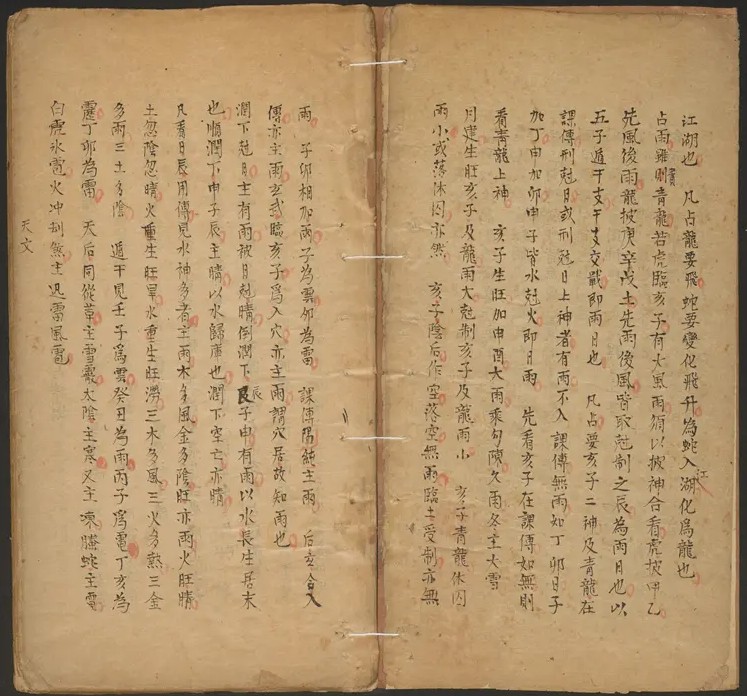 江湖也 凡占龍要飛蛇要變化飛升為蛇入江湖化為龍也
占雨雖則責青龍若虎臨亥子有大風雨須以披神合看虎披甲乙
先風後雨龍披庚辛戊土先雨後風皆取尅制之辰為雨日也以
五子遁干支干支交戰即雨日也 凡占要亥子二神及青龍在
課傳刑尅日或刑尅日上神者有雨不入課傳無雨如丁卯日子
加丁申加卯申子皆水尅火即日雨 先看亥子在課傳如無則
看青龍上神 亥子生旺加申酉大雨乘勾陳久雨冬主大雪
月建生旺亥子及龍雨大尅制亥子及龍雨小 亥子青龍休囚
雨小或落休囚亦然 亥子陰后作空落空無雨臨土受制亦無
雨 子卯相加為雨子為雲卯為雷 課傳陽純主雨 后玄合入
傳亦主雨玄武臨亥子為入穴亦主雨謂穴居故知雨也
潤下尅日主有雨被日尅晴倒潤下辰子申有雨以水長生居末
也順潤下申子辰主晴以水歸庫也潤下空亡亦晴
凡看日辰用傳見水神多者主雨木多風金多陰旺亦雨火旺晴
土忽陰忽晴火重生旺旱水重生旺澇三木多風三火多熱三金
多雨三土多陰 遁干見壬子為雲癸丑為雨丙子為電丁亥為
霆丁卯為雷 天后同從革主雪霰太陰主寒又主凍螣蛇主電
白虎氷雹火冲刑煞主迅雷風電
天文